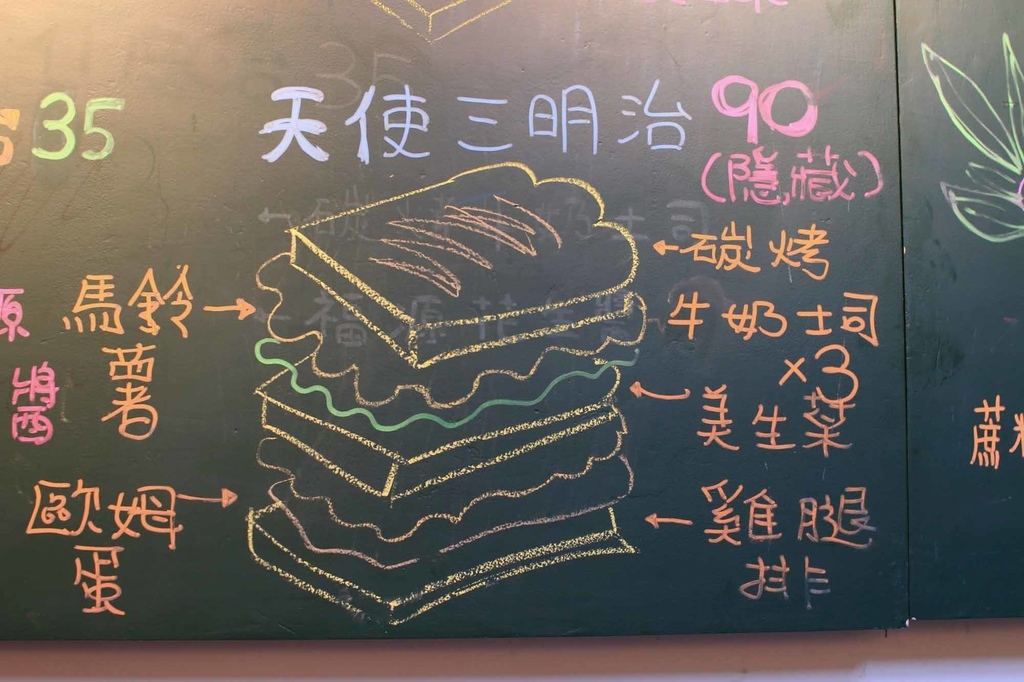 35
天使三明治 90
(隱藏)
碳烤
牛奶土司
×3
馬鈴
薯
美生菜
歐姆
蛋
雞腿
排
源
醬
蔗